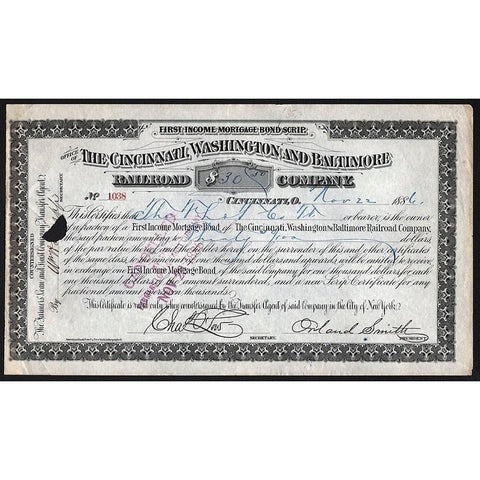 FIRST INCOME MORTGAGE BOND SCRIP.
OFFICE OF
THE CINCINNATI, WASHINGTON AND BALTIMORE
RAILROAD $30 COMPANY.
No 1038 CINCINNATI, O. Nov 22 1886.
This Certifies that or bearer, is the owner
of a fraction of a First Income Mortgage Bond of The Cincinnati, Washington & Baltimore Railroad Company,
the said fraction amounting to dollars
of the par value thereof and the holder hereof on the surrender of this and other certificates
of the same class, to an amount of one thousand dollars and upwards will be entitled to receive,
in exchange one First Income Mortgage Bond of the said company for one thousand dollars for each
one thousand dollars of amount surrendered, and a new Scrip Certificate for any
fractional amount
This Certificate is valid only when countersigned by the Transfer Agent of said Company in the City of New York.
Orland Smith
SECRETARY. PRESIDENT.
COUNTERSIGNED
The Farmers' Loan and Trust Company, Transfer Agent
By
SECRETARY
NOV